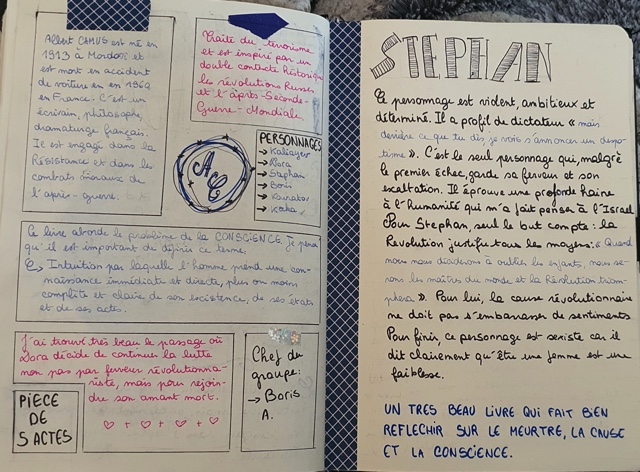 Albert CAMUS est né en
1913 à Mondovi et
est mort en accident
de voiture en en 1960
en France. C'est un
écrivain, philosophe,
dramaturge français.
Il est engagé dans la
Résistance et dans les
combats moraux de
l'après-guerre.
Traite du terrorisme
et est inspiré par un
double contexte historique
les révolutions Russes
et l'après-Seconde-
Guerre-Mondiale
AC
PERSONNAGES
→ Kaliayev
→ Dora
→ Stephan
→ Boris
→ Kouratov
→ Kaha
Ce livre aborde le problème de la CONSCIENCE. Je pense
qu'il est important de définir ce terme.
↳ Intuition par laquelle l'homme prend une con-
naissance immédiate et directe, plus ou moins
complète et claire de son existence, de ses états
et de ses actes.
J'ai trouvé très beau le passage où
Dora décide de continuer la lutte
non pas par ferveur révolutionna-
riste, mais pour rejoin-
dre son amant mort.
♡ + ♡ + ♡ + ♡
PIECE
DE
5 ACTES
Chef du
groupe:
→ Boris
A.
STEPHAN
Ce personnage est violent, ambitieux et
déterminé. Il a profil de dictateur « mais
derrière ce que tu dis, je vois s'annoncer un despo-
tisme ». C'est le seul personnage qui, malgré
le premier échec, garde sa ferveur et son
exaltation. Il éprouve une profonde haine
à l'humanité qui m'a fait penser à l'Israel
Pour Stephan, seul le but compte : la
Révolution justifie tous les moyens : « Quand
nous nous déciderons à oublier les enfants, nous se-
rons les maîtres du monde et la Révolution triom-
phera ». Pour lui, la cause révolutionnaire
ne doit pas s'embarrasser de sentiments
Pour finir, ce personnage est sexiste car il
dit clairement qu'être une femme est une
faiblesse.
UN TRES BEAU LIVRE QUI FAIT BIEN
REFLECHIR SUR LE MEURTRE, LA CAUSE
ET LA CONSCIENCE.